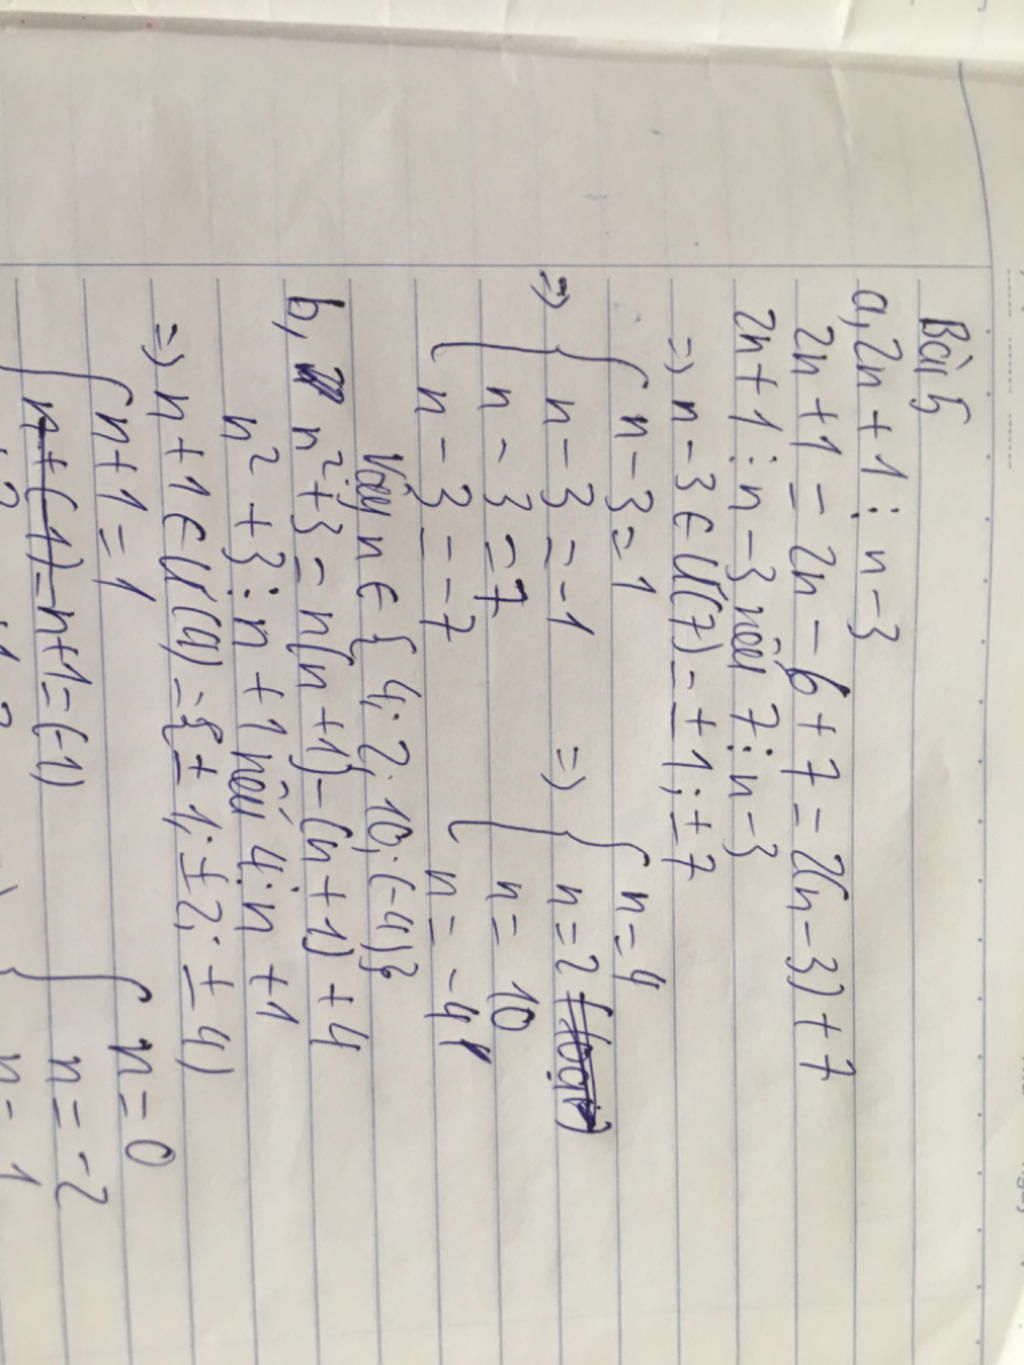 Bài 5
a, 2n + 1 ⋮ n - 3
2n + 1 = 2n - 6 + 7 = 2(n - 3) + 7
2n + 1 ⋮ n - 3 nếu 7 ⋮ n - 3
=> n - 3 ∈ Ư(7) = ±1; ±7
n - 3 = 1 n = 4
=> n - 3 = -1 => n = 2
n - 3 = 7 n = 10
n - 3 = -7 n = -4
Vậy n ∈ {4; 2; 10; (-4)}
b, n² + 3 = n(n + 1) - (n + 1) + 4
n² + 3 ⋮ n + 1 nếu 4 ⋮ n + 1
=> n + 1 ∈ Ư(4) = {± 1; ± 2; ± 4)
n + 1 = 1 n = 0
n + 1 = (-1) n = -2
n = 1